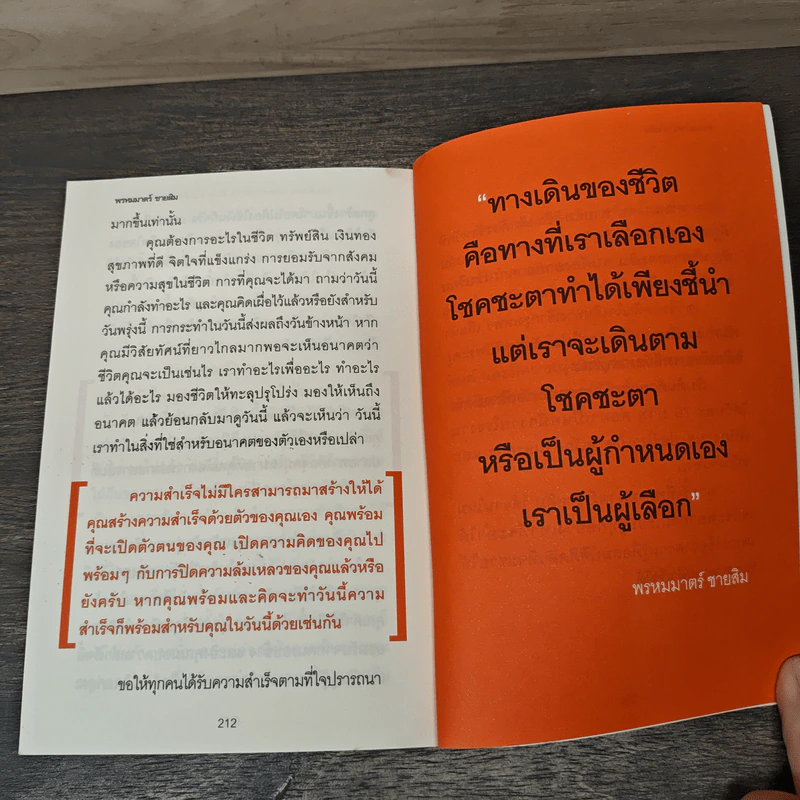 พรหมมาตร์ ชายสิม
มากขึ้นเท่านั้น
คุณต้องการอะไรในชีวิต ทรัพย์สิน เงินทอง
สุขภาพที่ดี จิตใจที่แข็งแกร่ง การยอมรับจากสังคม
หรือความสุขในชีวิต การที่คุณจะได้มา ถามว่าวันนี้
คุณกำลังทำอะไร และคุณคิดเผื่อไว้แล้วหรือยังสำหรับ
วันพรุ่งนี้ การกระทำในวันนี้ส่งผลถึงวันข้างหน้า หาก
คุณมีวิสัยทัศน์ที่ยาวไกลมากพอจะเห็นอนาคตว่า
ชีวิตคุณจะเป็นเช่นไร เราทำอะไรเพื่ออะไร ทำอะไร
แล้วได้อะไร มองชีวิตให้ทะลุปรุโปร่ง มองให้เห็นถึง
อนาคต แล้วย้อนกลับมาดูวันนี้ แล้วจะเห็นว่า วันนี้
เราทำในสิ่งที่ใช่สำหรับอนาคตของตัวเองหรือเปล่า
ความสำเร็จไม่มีใครสามารถมาสร้างให้ได้
คุณสร้างความสำเร็จด้วยตัวของคุณเอง คุณพร้อม
ที่จะเปิดตัวตนของคุณ เปิดความคิดของคุณไป
พร้อมๆ กับการปิดความล้มเหลวของคุณแล้วหรือ
ยังครับ หากคุณพร้อมและคิดจะทำวันนี้ความ
สำเร็จก็พร้อมสำหรับคุณในวันนี้ด้วยเช่นกัน
ขอให้ทุกคนได้รับความสำเร็จตามที่ใจปรารถนา
212
“ทางเดินของชีวิต
คือทางที่เราเลือกเอง
โชคชะตาทำได้เพียงชี้นำ
แต่เราจะเดินตาม
โชคชะตา
หรือเป็นผู้กำหนดเอง
เราเป็นผู้เลือก”
พรหมมาตร์ ชายสิม